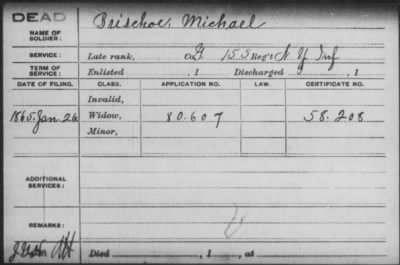 DEAD
NAME OF SOLDIER: Brischoe, Michael
SERVICE: Late rank, Co G. 155 Reg't N Y Inf
TERM OF SERVICE: Enlisted , 1 Discharged , 1
DATE OF FILING. CLASS. APPLICATION NO. LAW. CERTIFICATE NO.
Invalid,
1865. Jan. 26 Widow, 80.607 58.208
Minor,
ADDITIONAL SERVICES:
REMARKS:
Died , 1 , at